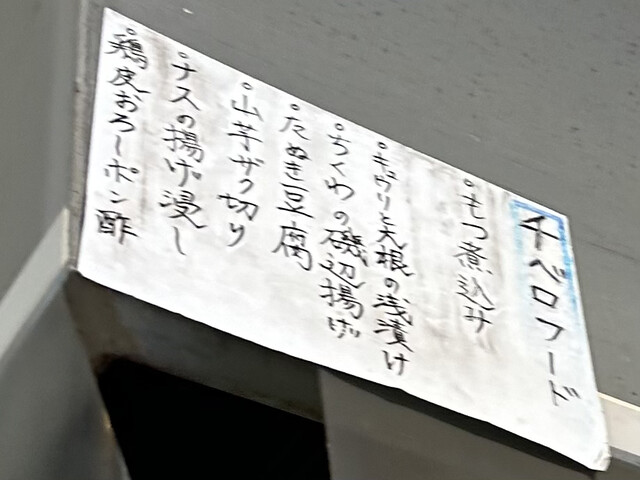 千ベロフード
・もつ煮込み
・キウリと大根の浅漬け
・ちくわの磯辺揚げ
・たぬき豆腐
・山芋ザク切り
・ナスの揚げ浸し
・鶏皮おろしポン酢